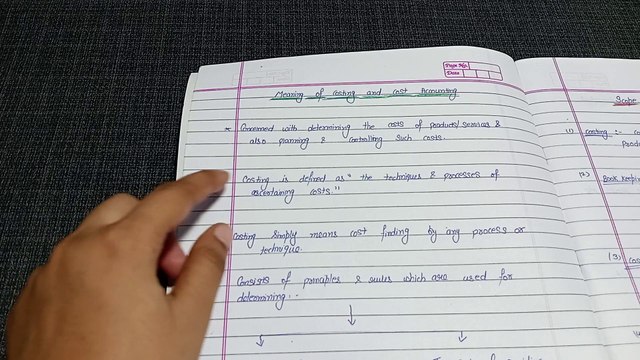 Page No.
Date
Meaning of Costing and Cost Accounting
* Concerned with determining the costs of products/services &
also planning & controlling such costs.
Costing is defined as "the techniques & processes of
ascertaining costs."
Costing simply means cost finding by any process or
technique.
Consists of principles & rules which are used for
determining :-
Scope
1) Costing :-
(2) Book Keepin
(3)